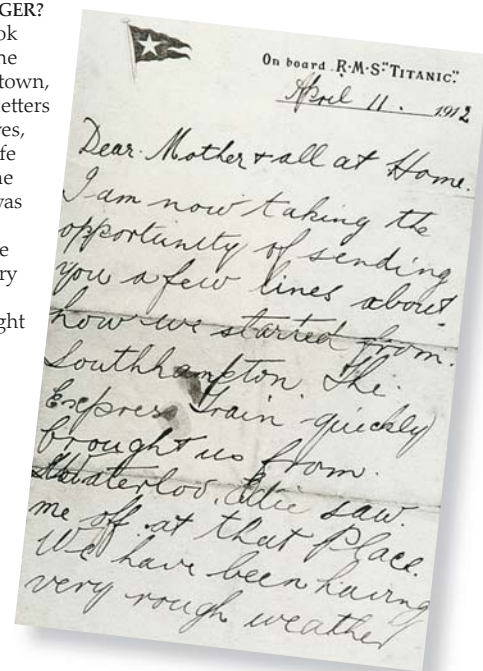 GER?
ok
ne
town,
etters
ves,
fe
ne
was
e
ry
ght
On board R·M·S "TITANIC".
April 11. 1912
Dear Mother & all at Home.
I am now taking the
opportunity of sending
you a few lines about
how we started from.
Southhampton. The.
Express Train quickly
brought us from.
Waterloo. Edie saw.
me off. at that Place.
We have been having
very rough weather